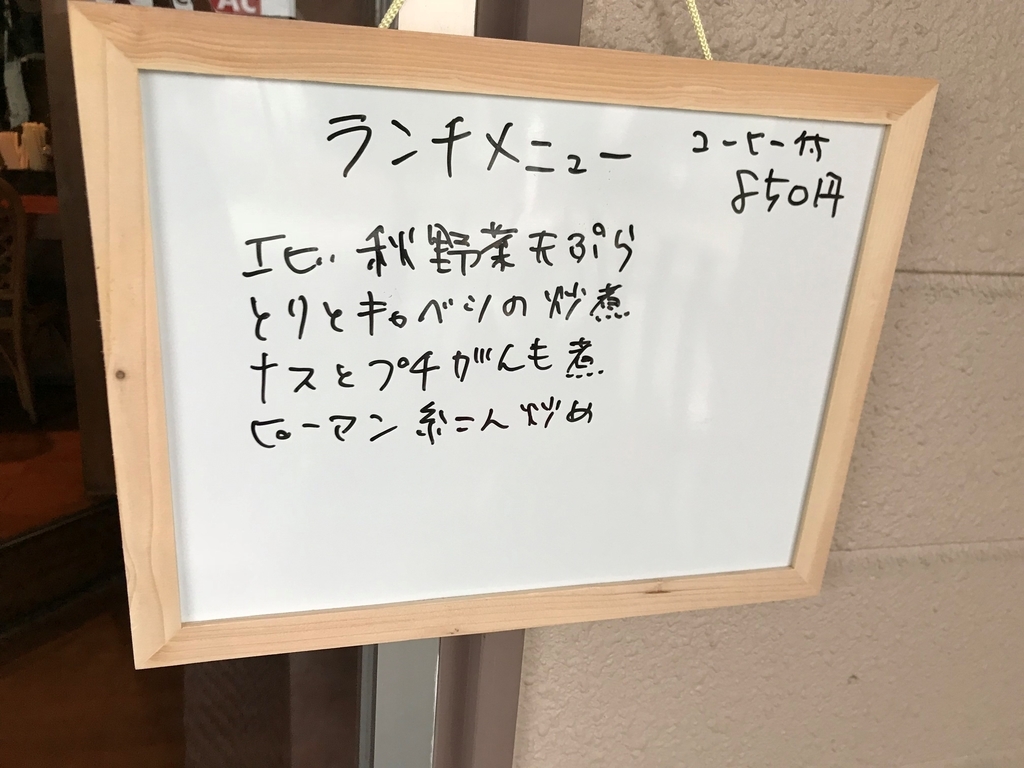 AC
ランチメニュー
コーヒー付
850円
エビ、秋野菜天ぷら
とりとキャベツの炒煮
ナスとプチがんも煮
ピーマン糸こん炒め